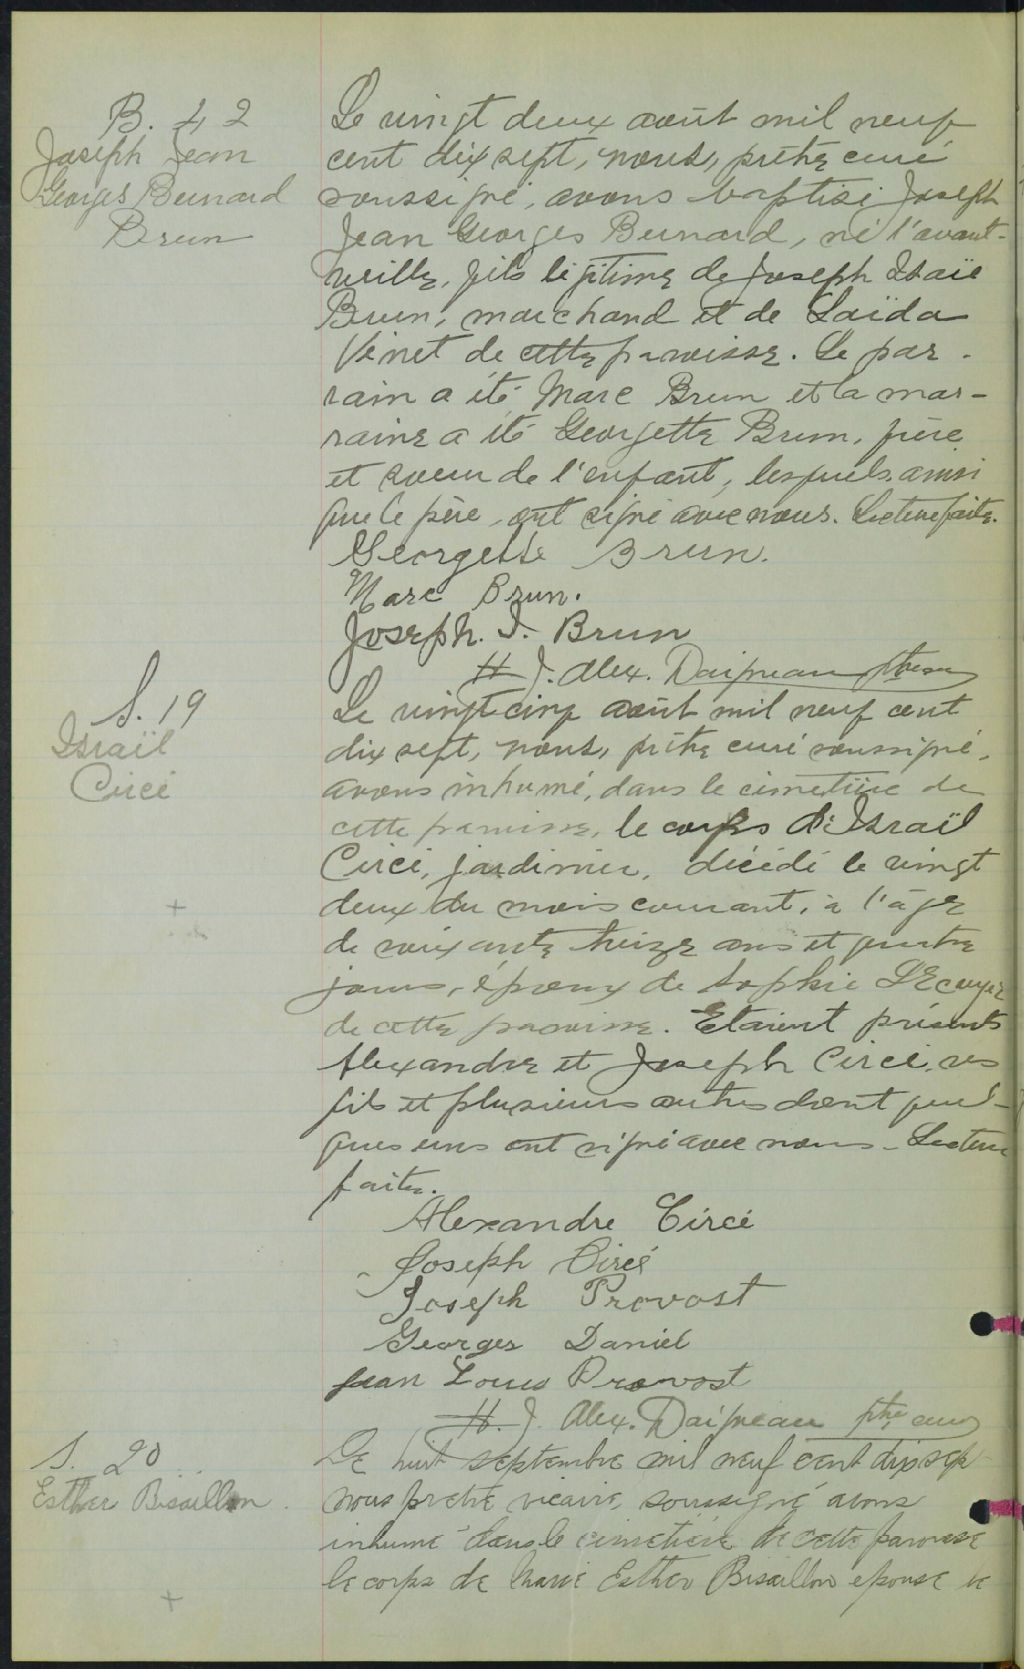 B. 42
Joseph Jean
Georges Bernard
Brun
Le vingt deux août mil neuf
cent dix sept, nous, prêtre curé
soussigné, avons baptisé Joseph
Jean Georges Bernard, né l'avant-
veille, fils légitime de Joseph Isaïe
Brun, marchand et de Laïda
Vinet de cette paroisse. Le par-
rain a été Marc Brun et la mar-
raine a été Georgette Brun, frère
et soeur de l'enfant, lesquels ainsi
que le père, ont signé avec nous. Lecture faite.
Georgette Brun.
Marc Brun.
Joseph. I. Brun
H. J. Alex. Daigneau ptre cu
S. 19
Israïl
Circé
Le vingt cinq août mil neuf cent
dix sept, nous, prêtre curé soussigné,
avons inhumé, dans le cimetière de
cette paroisse, le corps de Israïl
Circé, jardinier, décédé le vingt
deux du mois courant, à l'âge
de soixante treize ans et quatre
jours, époux de Sophie L'Ecuyer
de cette paroisse. Etaient présents
Alexandre et Joseph Circé, ses
fils et plusieurs autres dont quel-
ques uns ont signé avec nous - Lecture
faite.
Alexandre Circé
Joseph Circé
Joseph Provost
Georges Daniel
Jean Louis Provost
H. J. Alex. Daigneau ptre cure
S. 20
Esther Bisaillon.
Le huit septembre mil neuf cent dix sept
nous pretre vicaire, soussigné avons
inhumé dans le cimetière de cette paroisse
le corps de Marie Esther Bisaillon epouse de